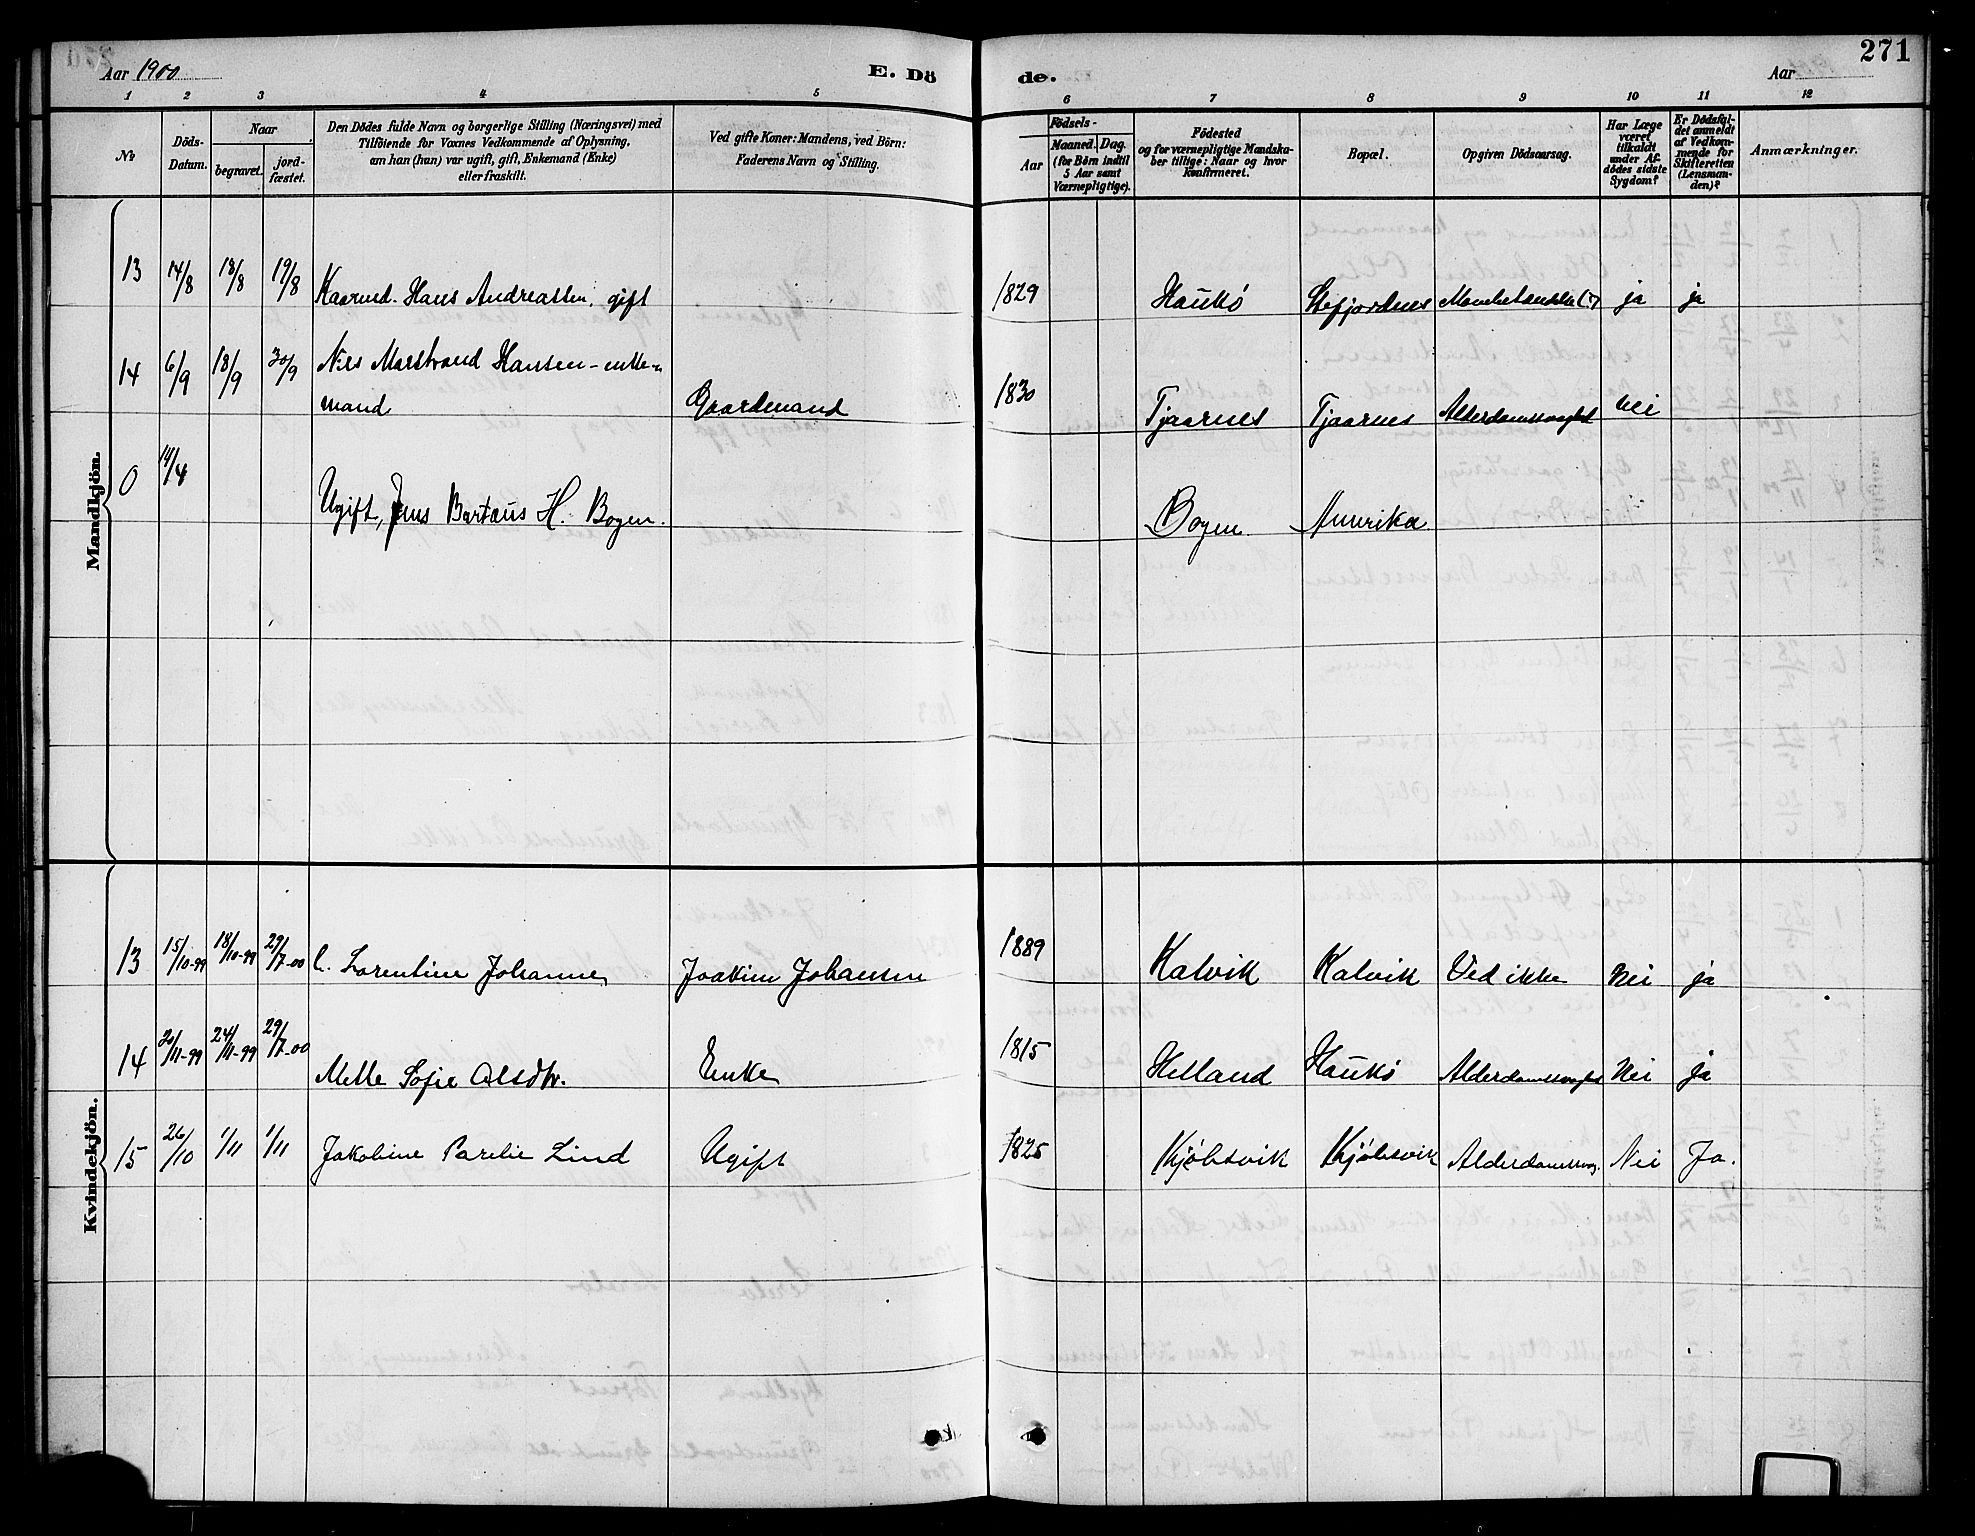 271
Aar 1900
E. Dö
de.
Aar
1 2 3 4 5 6 7 8 9 10 11 12
No.
Döds-
Datum.
Naar
begravet.
jord-
fæstet.
Den Dödes fulde Navn og borgerlige Stilling (Næringsvei) med
Tilföiende for Voxnes Vedkommende af Oplysning,
om han (hun) var ugift, gift, Enkemand (Enke)
eller fraskilt.
Ved gifte Koner: Mandens, ved Börn:
Faderens Navn og Stilling.
Födsels-
Aar
Maaned. Dag.
(for Börn indtil
5 Aar samt
Værnepligtige).
Födested
og for værnepligtige Mandska-
ber tillige: Naar og hvor
konfirmeret.
Bopæl.
Opgiven Dödsaarsag.
Har Læge
været
tilkaldt
under Af-
dödes sidste
Sygdom?
Er Dödsfal-
det anmeldt
af Vedkom-
mende for
Skifteretten
(Lensman-
den)?
Anmærkninger.
Mandkjön.
13 14/8 18/8 19/8 Kaarmd. Hans Andreassen, gift 1829 Haukö Stefjordnes ja ja
14 6/9 18/9 30/9 Nils Marstrand Hansen - enke-
mand Gaardmand 1830 Tjaarnes Tjaarnes Alderdomssvaghed Nei
0 14/4 Ugift, Jens Bartæus H. Bogen. Bogen Amerika
Kvindekjön.
13 15/10-99 18/10-99 29/7-00 Lorentine Johanne Joakim Johansen 1889 Kalvik Kalvik Ved ikke Nei ja
14 20/11-99 24/11-99 29/7-00 Mette Sofie Olsdtr. Enke 1815 Helland Haukö Alderdomssvaghed Nei ja
15 26/10 1/11 1/11 Jakobine Parelie Lind Ugift 1825 Kjöbsvik Kjöbsvik Alderdomssvag. Nei Ja.